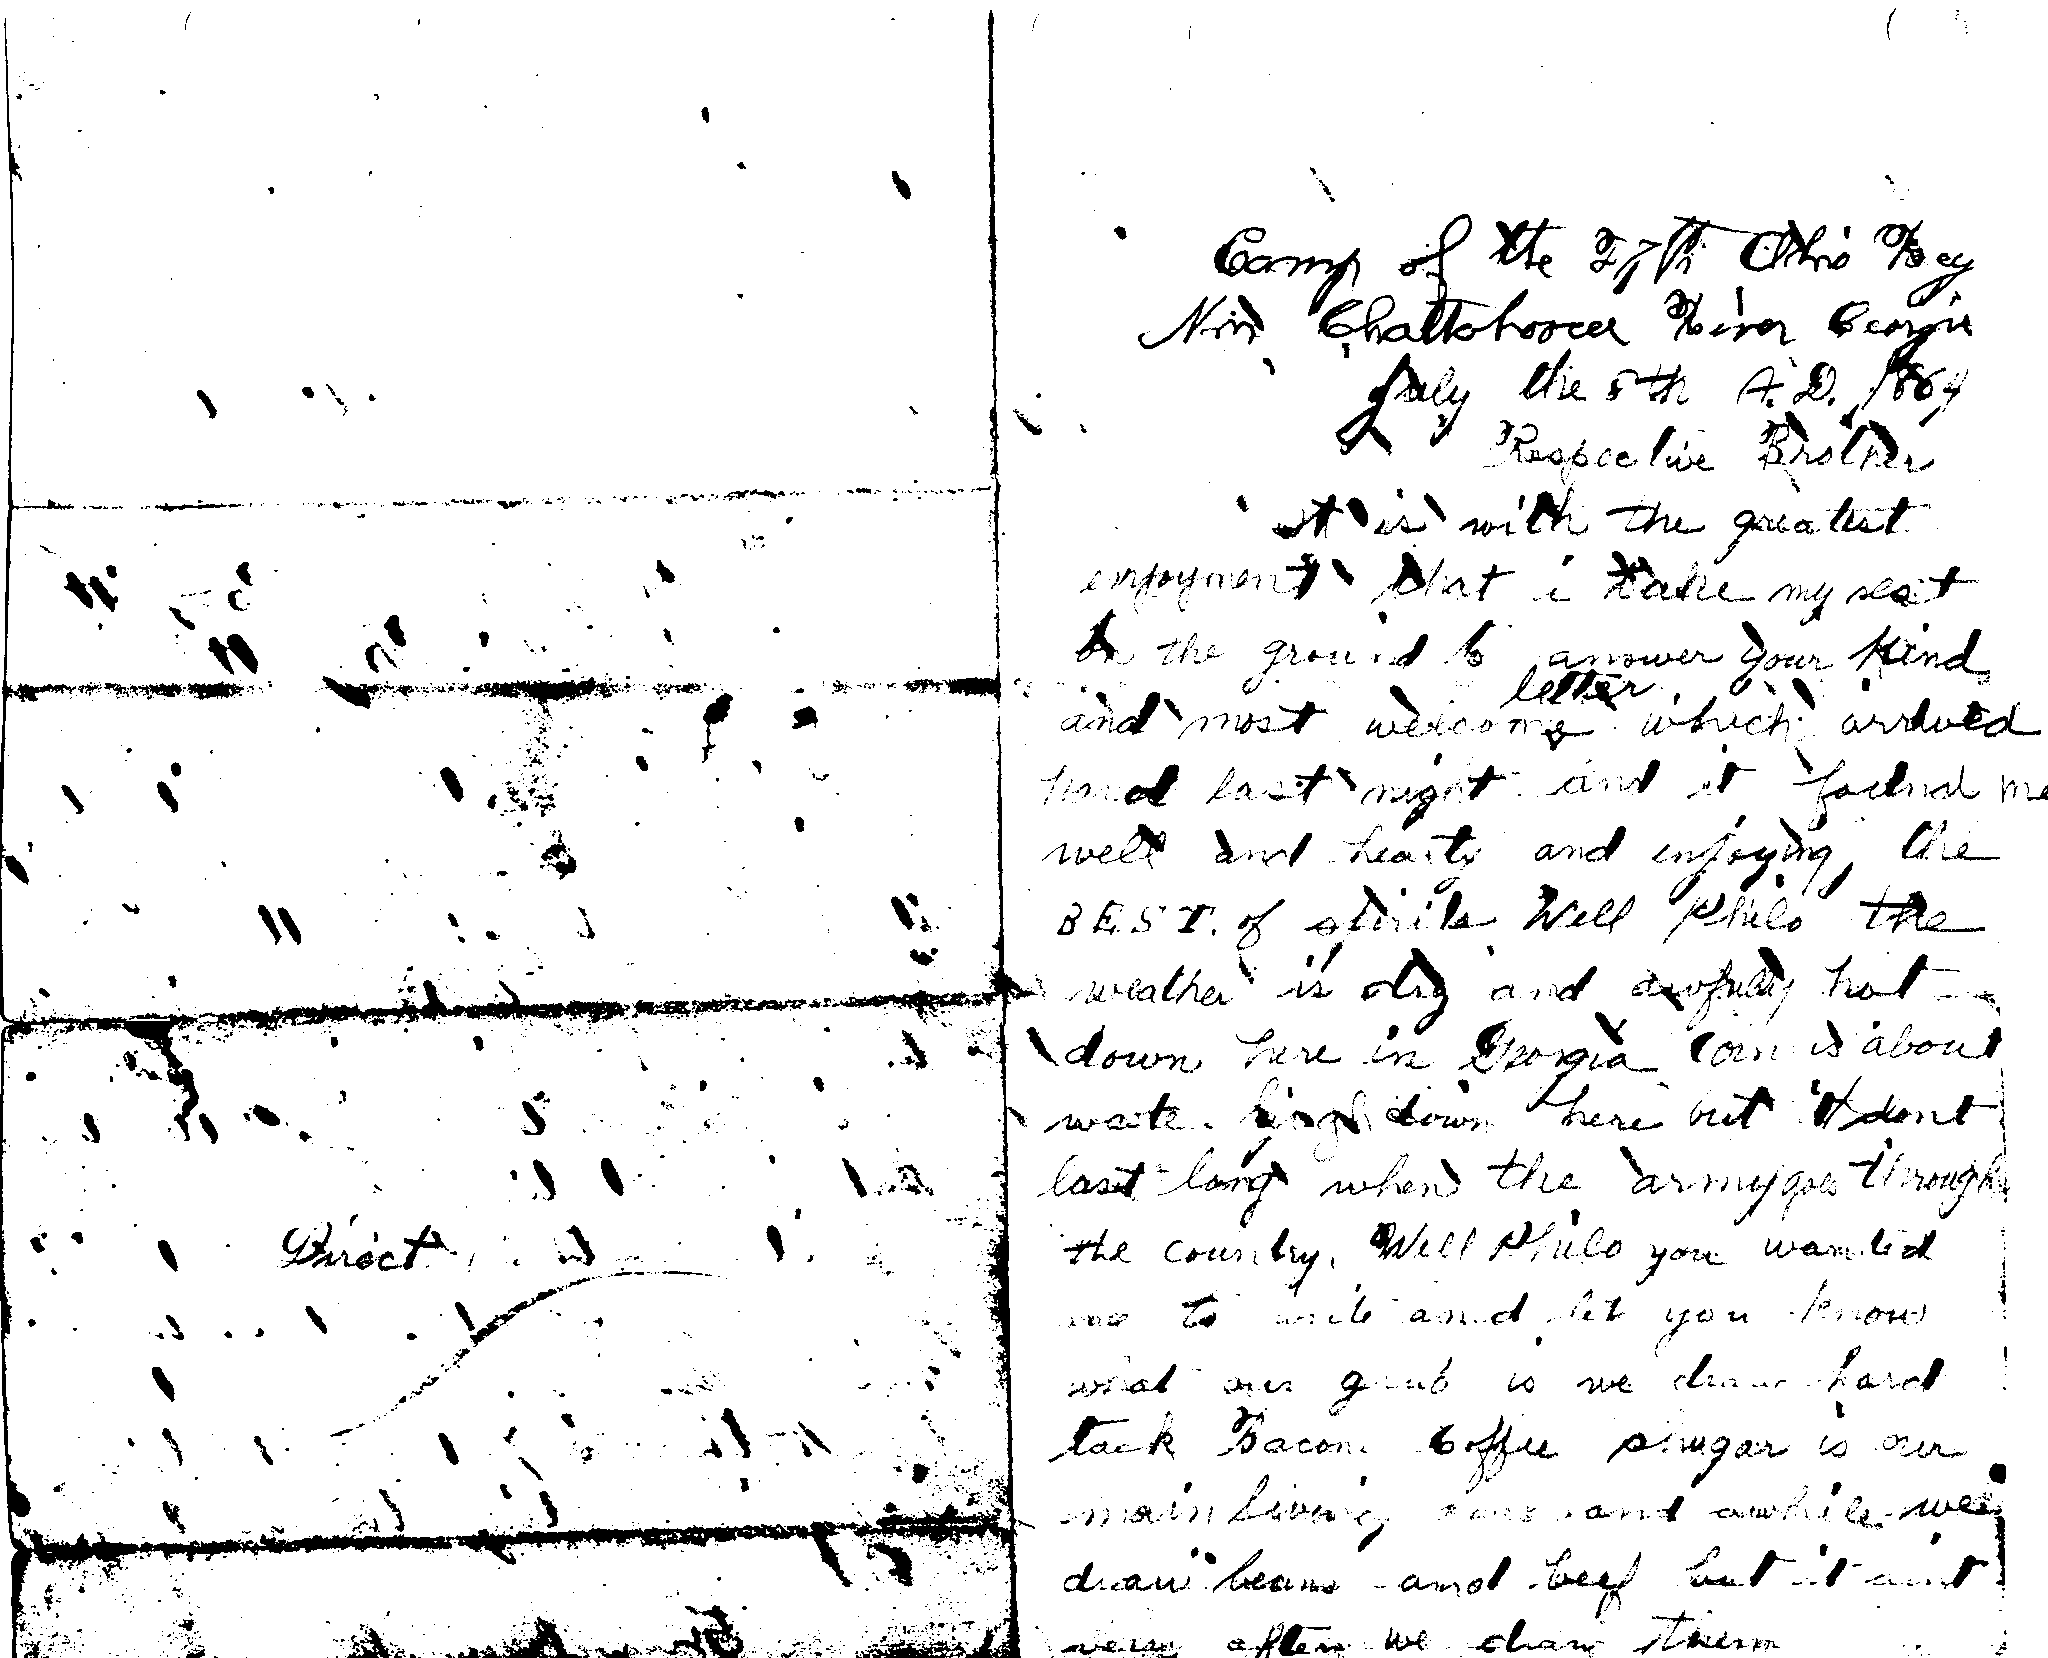 Direct
Camp of the 27th Ohio Reg
Nire Chattohoocee River Georgia
July the 8th A.D. 1864
Respective Brother
it is with the greatest
enjoyment that i take my seat
on the ground to answer your kind
letter
and most welcome which arived
hand last night and it found me
well and hearty and enjoying the
BEST. of spirits Well Philo the
weather is dry and awfully hot
down here in Georgia Corn is about
waste high down here but it dont
last long when the army goes through
the country. Well Philo you wanted
me to write and let you know
what our grub is we draw hard
tack Bacon Coffee shugar is our
main living and awhile wee
draw beans and beef but it aint
very often we draw them